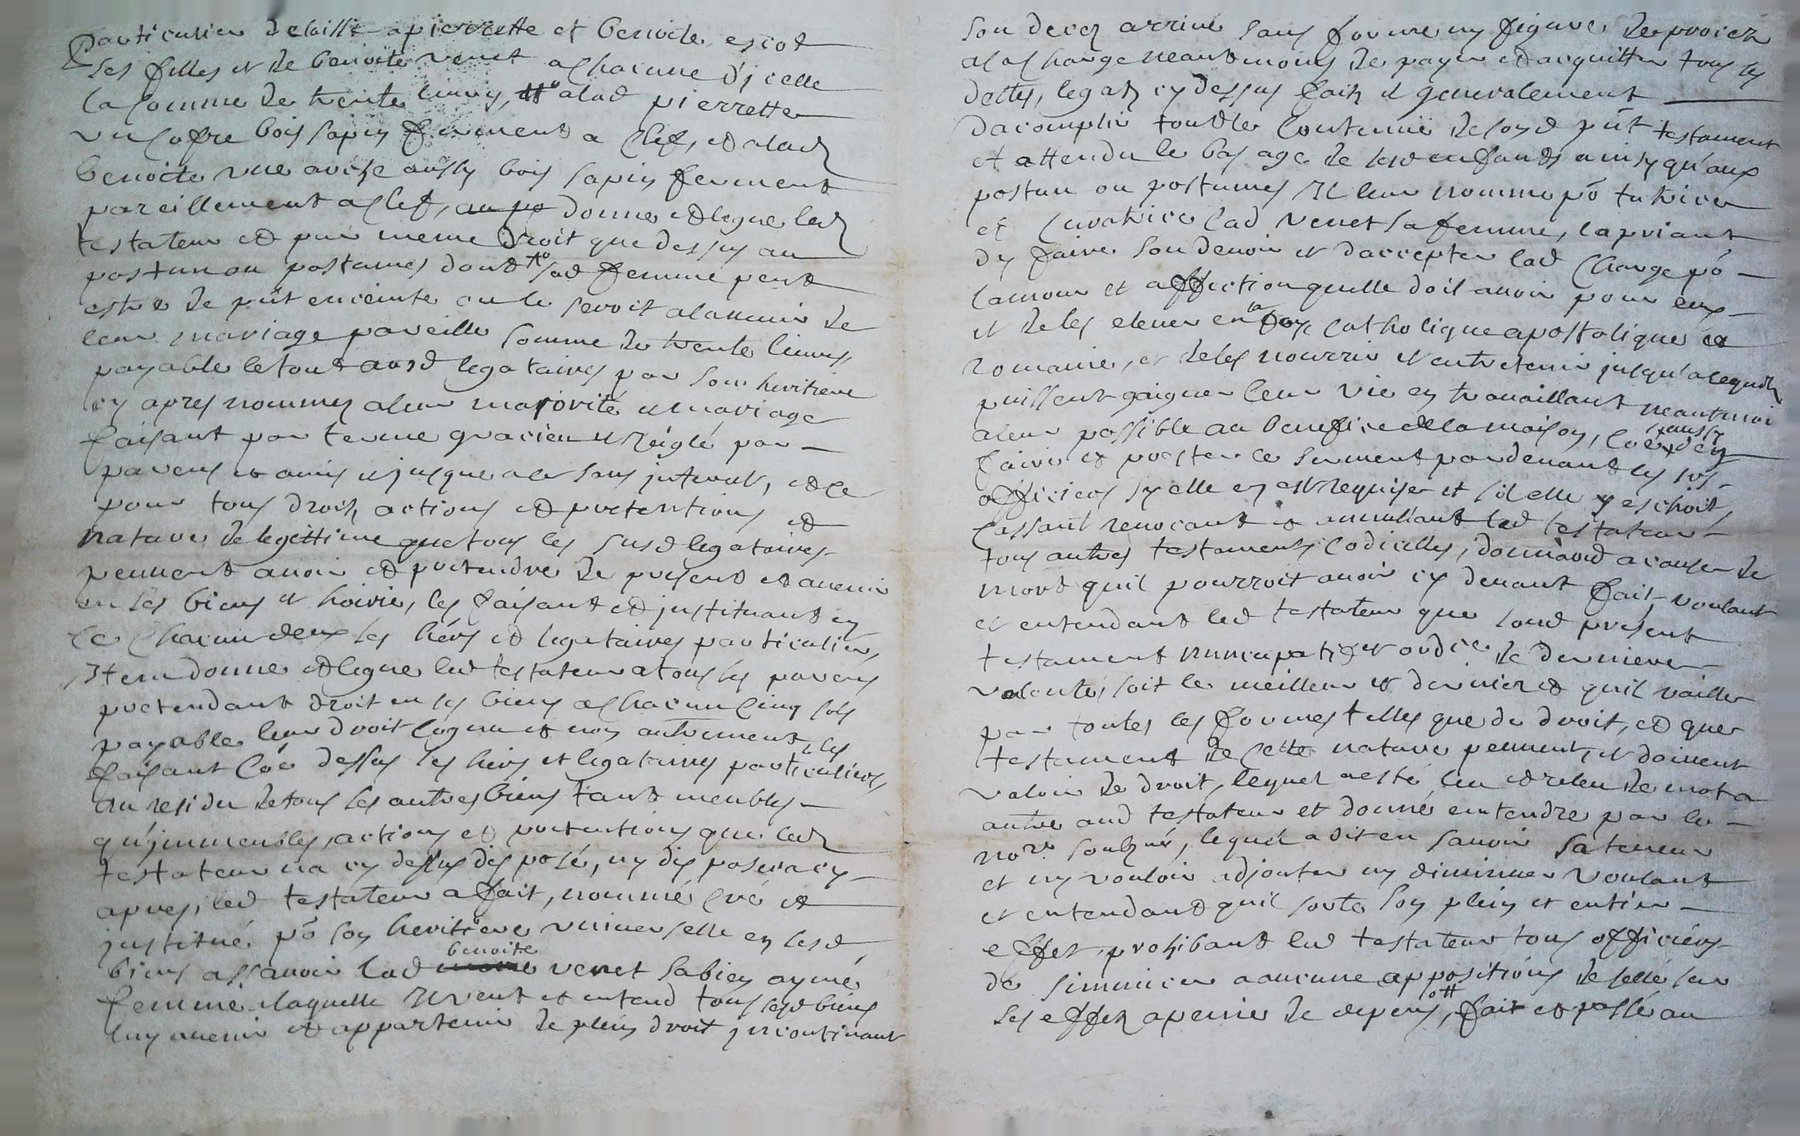 particulier delaisse a pierrette et benoite escot
ses filles et de benoite venet a chacune d'jcelle
la somme de trente livres, alad pierrette
un cofre bois sapin ferment a clef, et alad
benoite une arche aussy bois sapin ferment
pareillement a clef, au po donne et legue led
testateur et par meme droit que dessus au
postum ou postumes dont sad femme peut
estre de pnt enceinte ou le seroit a lavenir de
leur mariage pareille somme de trente livres
payable le tout ausd legataires par son heritiere
cy apres nommez a leur majorité et mariage
faisant par terme gracieux et réglé par
parens et amis et jusque alor sans jnterest, et ce
pour tous droits actions et pretentions et
nature de legittime que tous les susd legataires
peuvent avoir et pretendre de present et avenir
en ses biens et hoirie, les faisant et jnstituant en
ce chacun deux ses heirs et legataires particuliers,
Item donne et legue led testateur a tous ses parens
pretendant droit en ses biens a chacun cinq sols
payable leur droit cognu et non autrement, les
faisant coe dessus ses heirs et legataires particuliers,
au residu de tous ses autres biens tant meubles
qu'jmmeubles, actions et pretentions que led
testateur na cy dessus disposé, ny disposera cy
apres, led testateur a fait, nommé créé et
jnstitué po son heritiere universelle en sesd
benoite
biens assavoir lad venet sa bien aymé
femme, laquelle Il veut et entend tous sesd biens
luy avenir et appartenir de plein droit jncontinant
son decez arrivé sans forme ny figure de procez
a la charge neantmoins de payer et acquitter tous ses
dettes, legatz cy dessus faitz et generalement
dacomplir tout le contenu de sond pnt testament
et attendu le bas age de sesd enfants ainsy qu'aux
postum ou postumes Il leur nomme po tutrice
et curatrice lad venet sa femme, la priant
dy faire son devoir et daccepter lad charge po
lamour et affection quelle doit avoir pour eux
et de les elever en la foy catholique apostolique et
romaine, et de les nourrir et entretenir jusqu'a lequelz
puissent gaigner leur vie en travaillant neantmoi
a leur possible au benefice de la maison,
faire et prester ce serment par devant les srs
officiers sy elle en est requise et sil elle y eschoit,
cassant revocant et annullant led testateur
tous autres testaments codicilles, donnaond a cause de
mort quil pourroit avoir cy devant fait, voulant
et entendant led testateur que sond present
testament nuncupatif et ordce de derniere
volonté, soit le meilleur et dernier et quil vaille
par toutes les formes telles que de droit, et que
testament de cette nature peuvent, et doivent
valoir de droit, lequel a esté leu et releu de mot a
autre aud testateur et donné entendre par le
nore soubzné, lequel a dit en savoir sa teneur
et ny vouloir adjouter ny diminuer voulant
et entendant quil sorte son plein et entier
effet, prohibant led testateur tous officiers
de simmicer a aucune appositions de scellé sur
ses effetz a peine de depens, fait et passé au